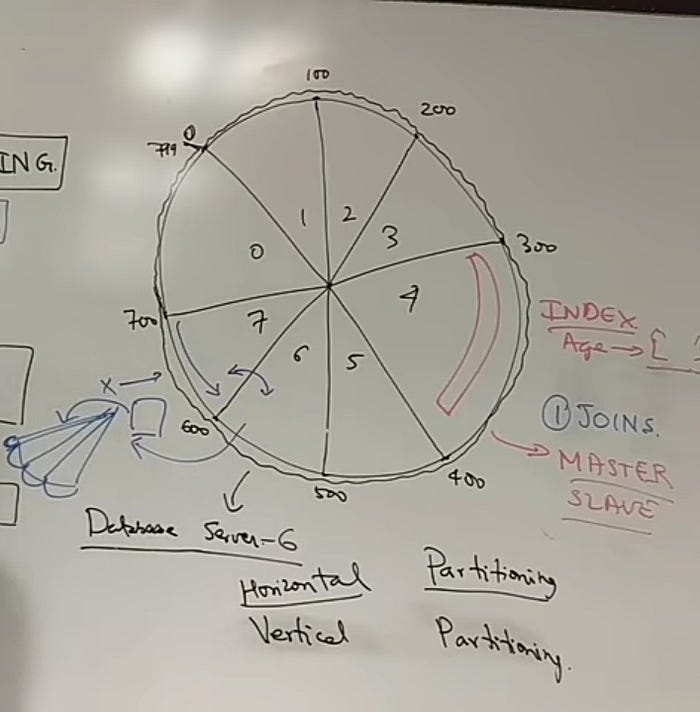 100
200
0
799
ING.
1
2
3
0
300
4
700
7
INDEX
Age → [
6
5
X →
① JOINS.
600
MASTER
400
SLAVE
500
Database Server-6
Horizontal Partitioning
Vertical Partitioning.